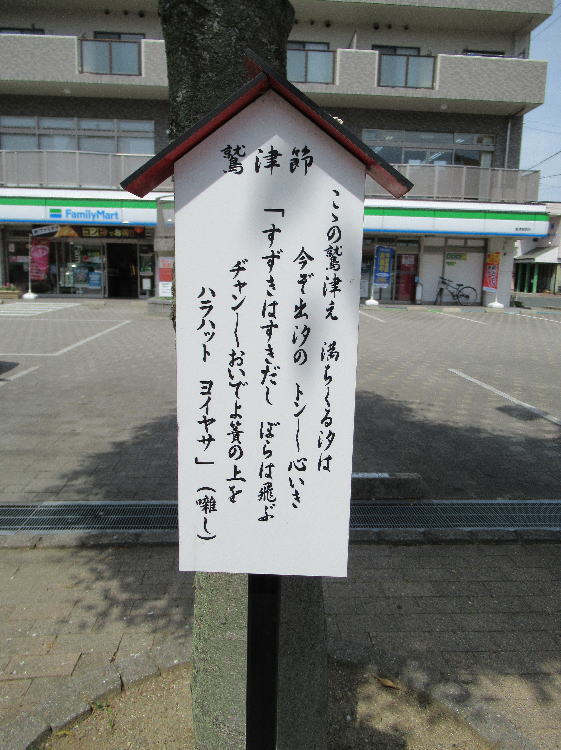 鷲津節
こゝの鷲津え 満ちくる汐は
今ぞ出汐の トン〱心いき
「すずきはすきだし ぼらは飛ぶ
ヂャン〱おいでよ簀の上を
ハラハット ヨイヤサ」（囃し）
FamilyMart